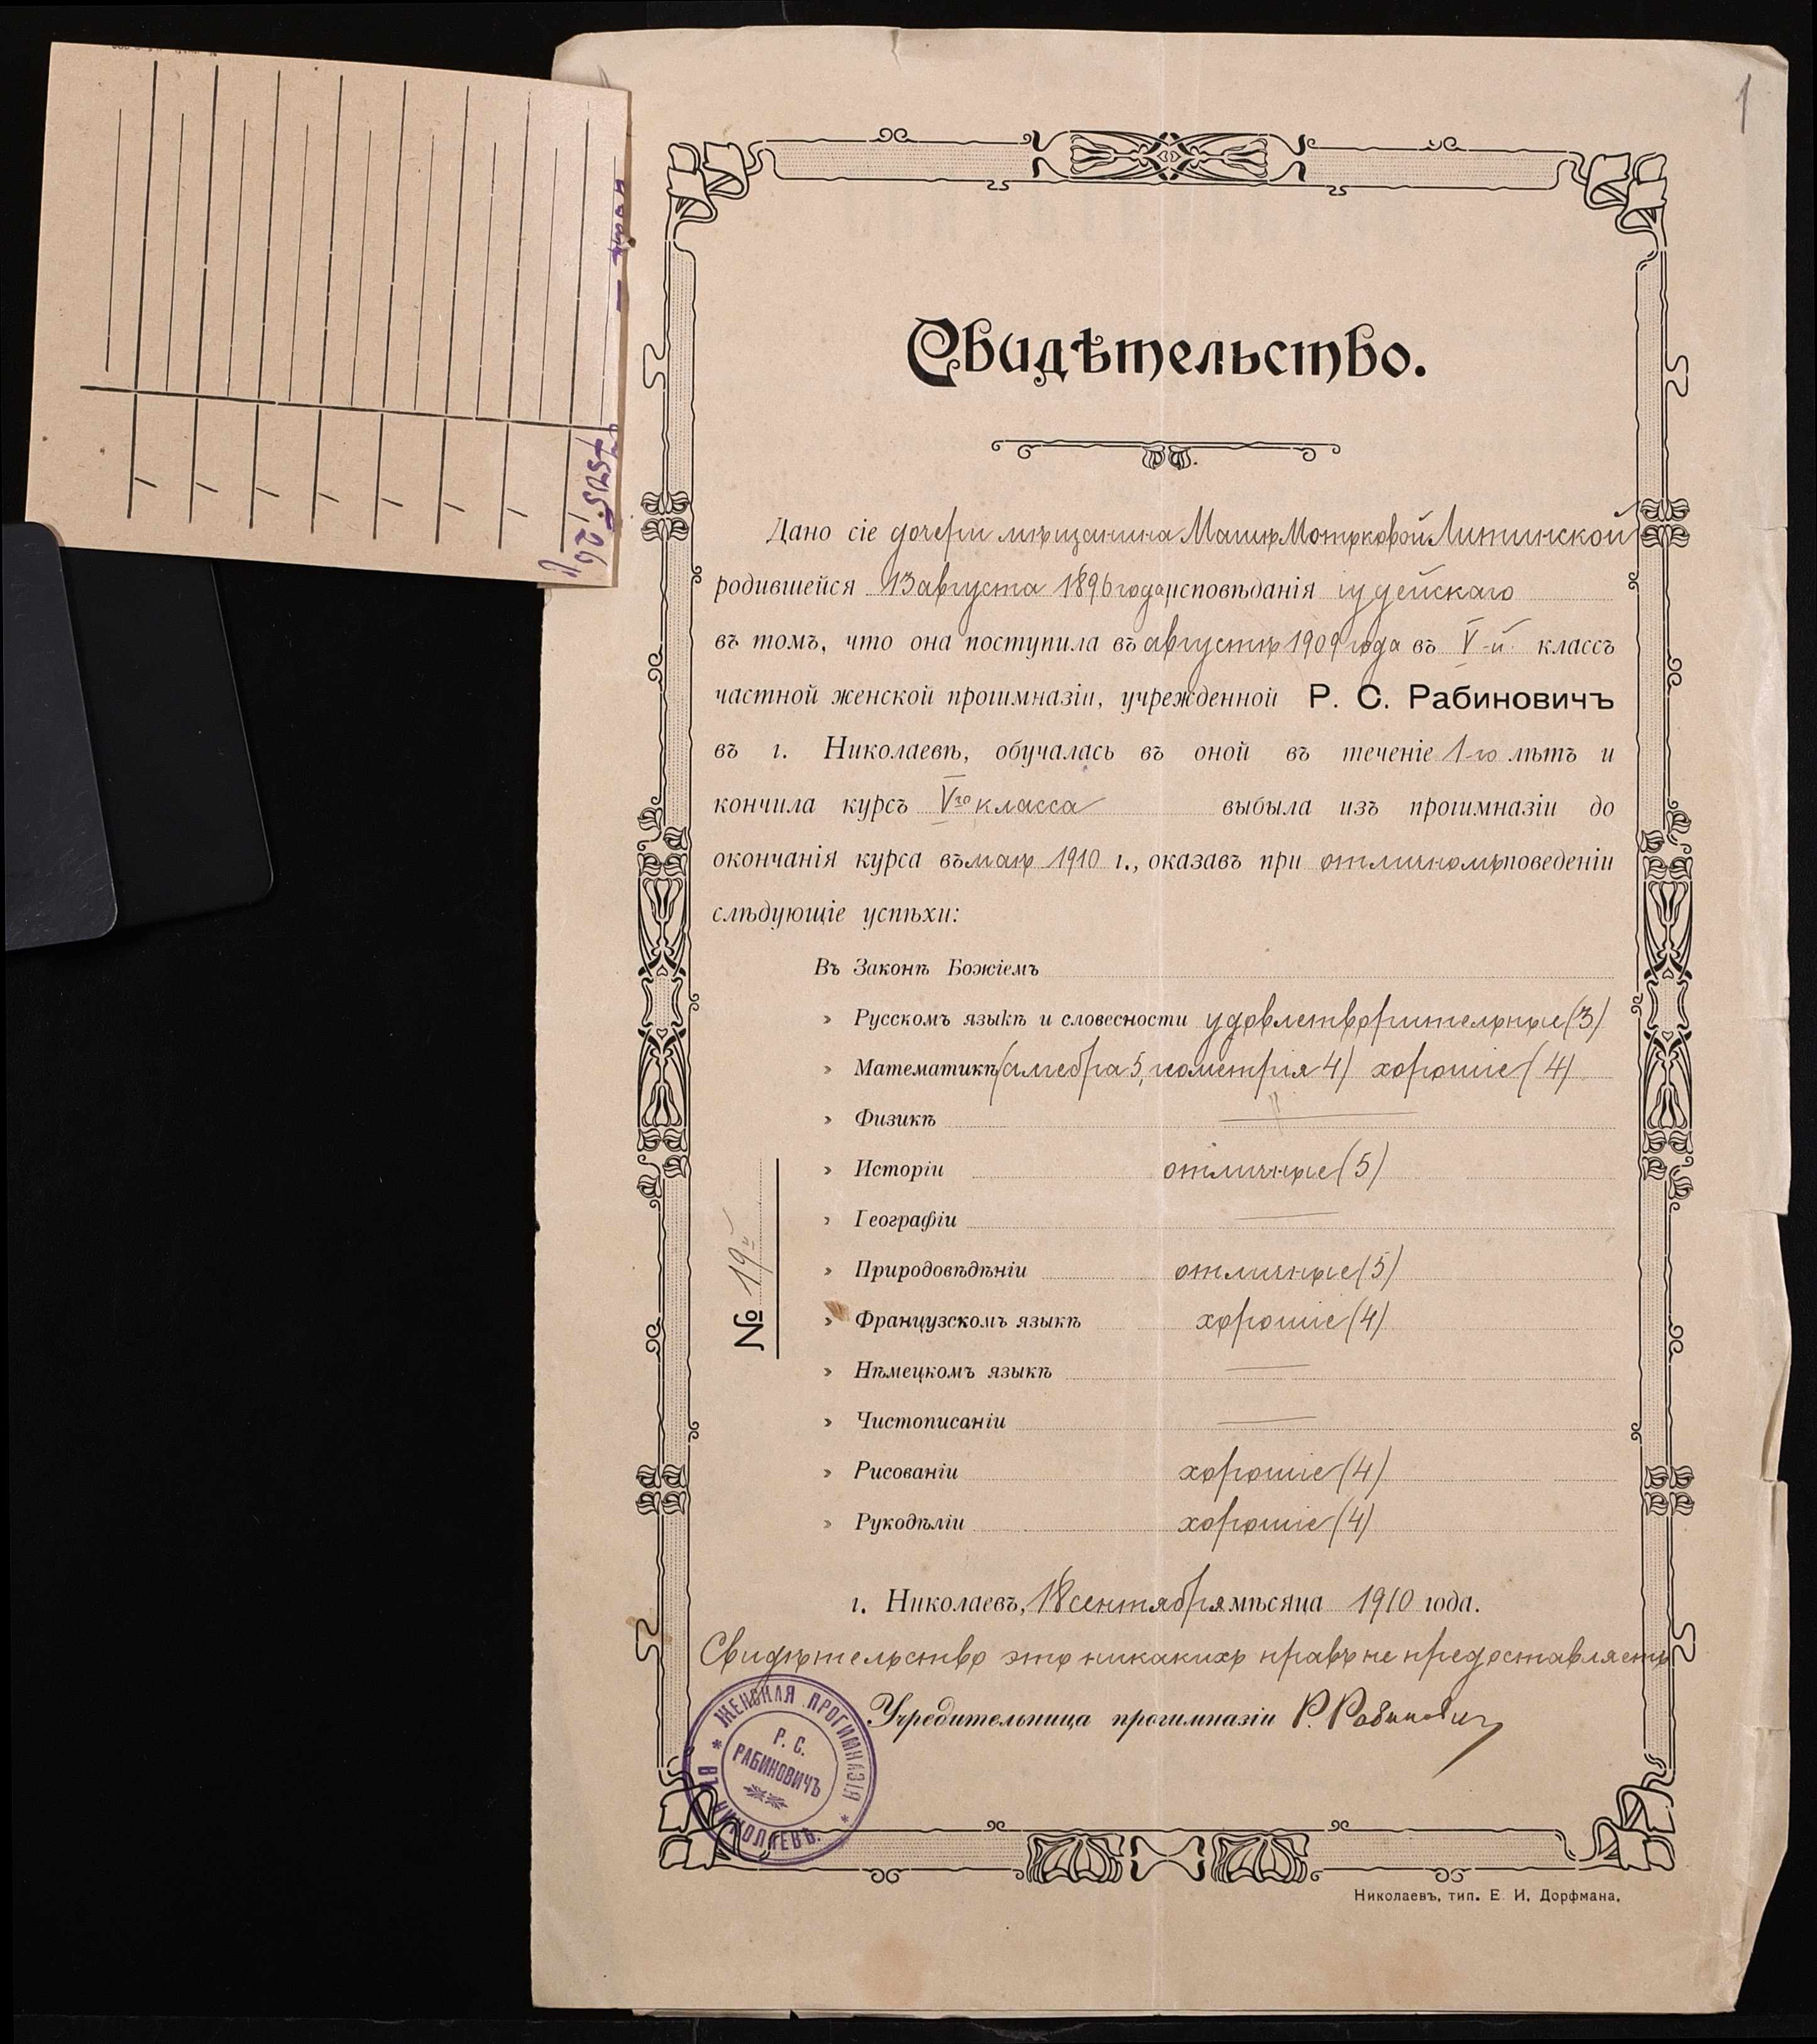 1
Свидѣтельство.
Дано сіе дочери мѣщанина Машѣ Мотьковой Липинской
родившейся 13 августа 1896 года исповѣданія іудейскаго
въ томъ, что она поступила въ августѣ 1909 года въ V-й классъ
частной женской прогимназіи, учрежденной Р. С. Рабиновичъ
въ г. Николаевѣ, обучалась въ оной въ теченіе 1-го лѣтъ и
кончила курсъ V го класса выбыла изъ прогимназіи до
окончанія курса въ маѣ 1910 г., оказавъ при отличномъ поведеніи
слѣдующіе успѣхи:
Въ Законѣ Божіемъ
» Русскомъ языкѣ и словесности удовлетворительные (3)
» Математикѣ (алгебра 5, геометрія 4) хорошіе (4)
» Физикѣ —
» Исторіи отличные (5)
» Географіи —
» Природовѣдѣніи отличные (5)
» Французскомъ языкѣ хорошіе (4)
» Нѣмецкомъ языкѣ —
» Чистописаніи —
» Рисованіи хорошіе (4)
» Рукодѣліи хорошіе (4)
№ 19й
г. Николаевъ, 18 сентября мѣсяца 1910 года.
Свидѣтельство это никакихъ правъ не предоставляетъ
Учредительница прогимназіи Р. Рабинович
ЖЕНСКАЯ ПРОГИМНАЗІЯ
Р. С.
РАБИНОВИЧЪ
ВЪ НИКОЛАЕВѢ.
Николаевъ, тип. Е. И. Дорфмана.